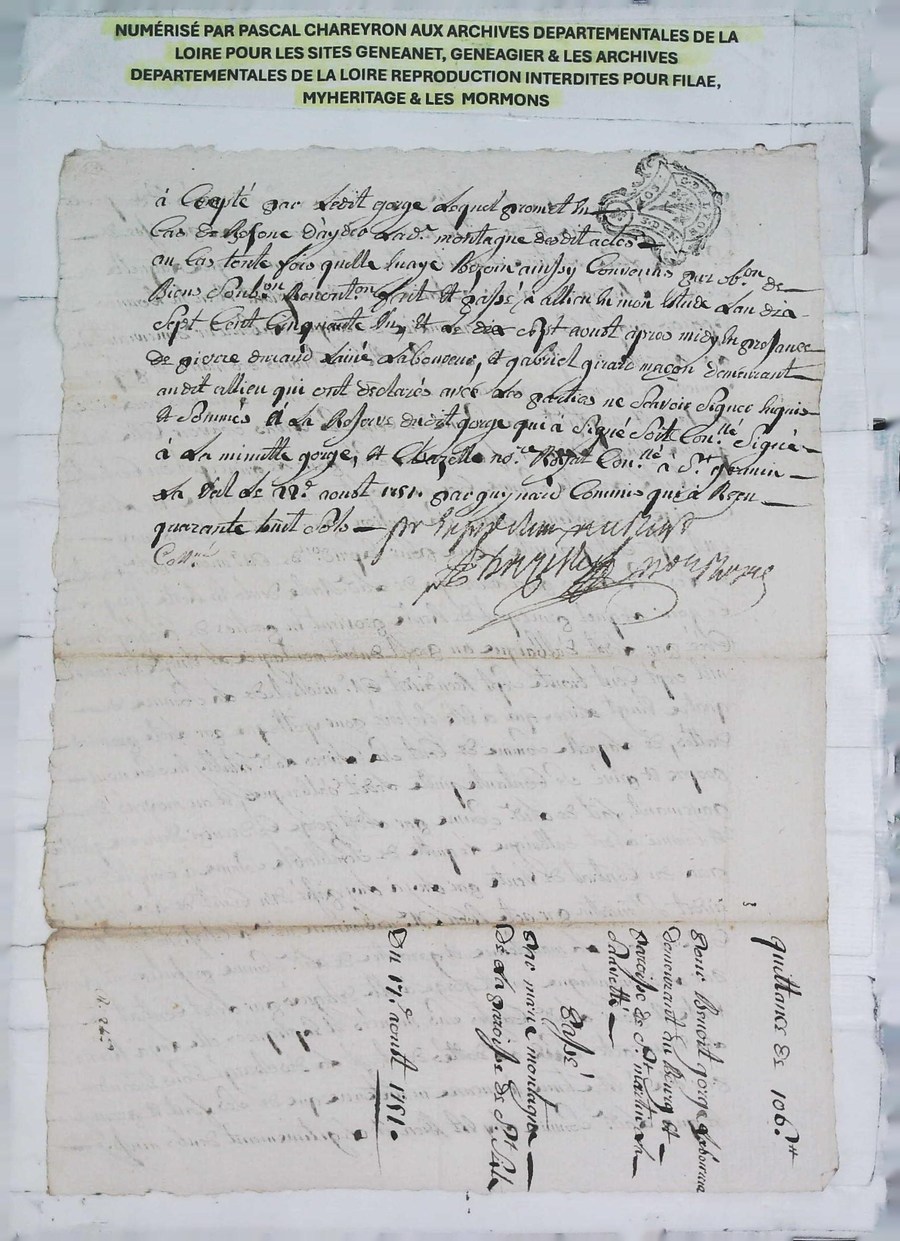 NUMÉRISÉ PAR PASCAL CHAREYRON AUX ARCHIVES DEPARTEMENTALES DE LA
LOIRE POUR LES SITES GENEANET, GENEAGIER & LES ARCHIVES
DEPARTEMENTALES DE LA LOIRE REPRODUCTION INTERDITES POUR FILAE,
MYHERITAGE & LES MORMONS
à Compté par Ledit gorge Lequel promet En
Cas de Besone d'ayder Lad.e montagne desdit actes
au Cas toute fois quelle En aye Besoin ainsy Convenus par obon de
Biens Soubon Renonton fait Et passé à allieu En mon Estude L'an dix
Sept Cent Cinquante Un, Et Le dix Sept aoust apres midy En presance
de pierre durand Lainé Laboureur, Et gabriel girard maçon demeurant
audit allieu qui ont declarés avec Les parties ne Scavoir Signer Enquis
Et Sommés à La Reserve dudit gorge qui à Signé Soit Conllé Signé
à La minutte gorge, Et Chazelle nore Royal Conllé à St germin
La Val Le 22e aoust 1751. par guynard Commis qui à Reçu
quarante huit Sols
Collné
quittance de 106tt
pour Benoit gorge Laboureur
Demeurant au Bourg Et
parroisse de St martin La
Sauveté
passé
par marie montagne
De La parroisse de St Sixte
Du 17e aoust 1751.